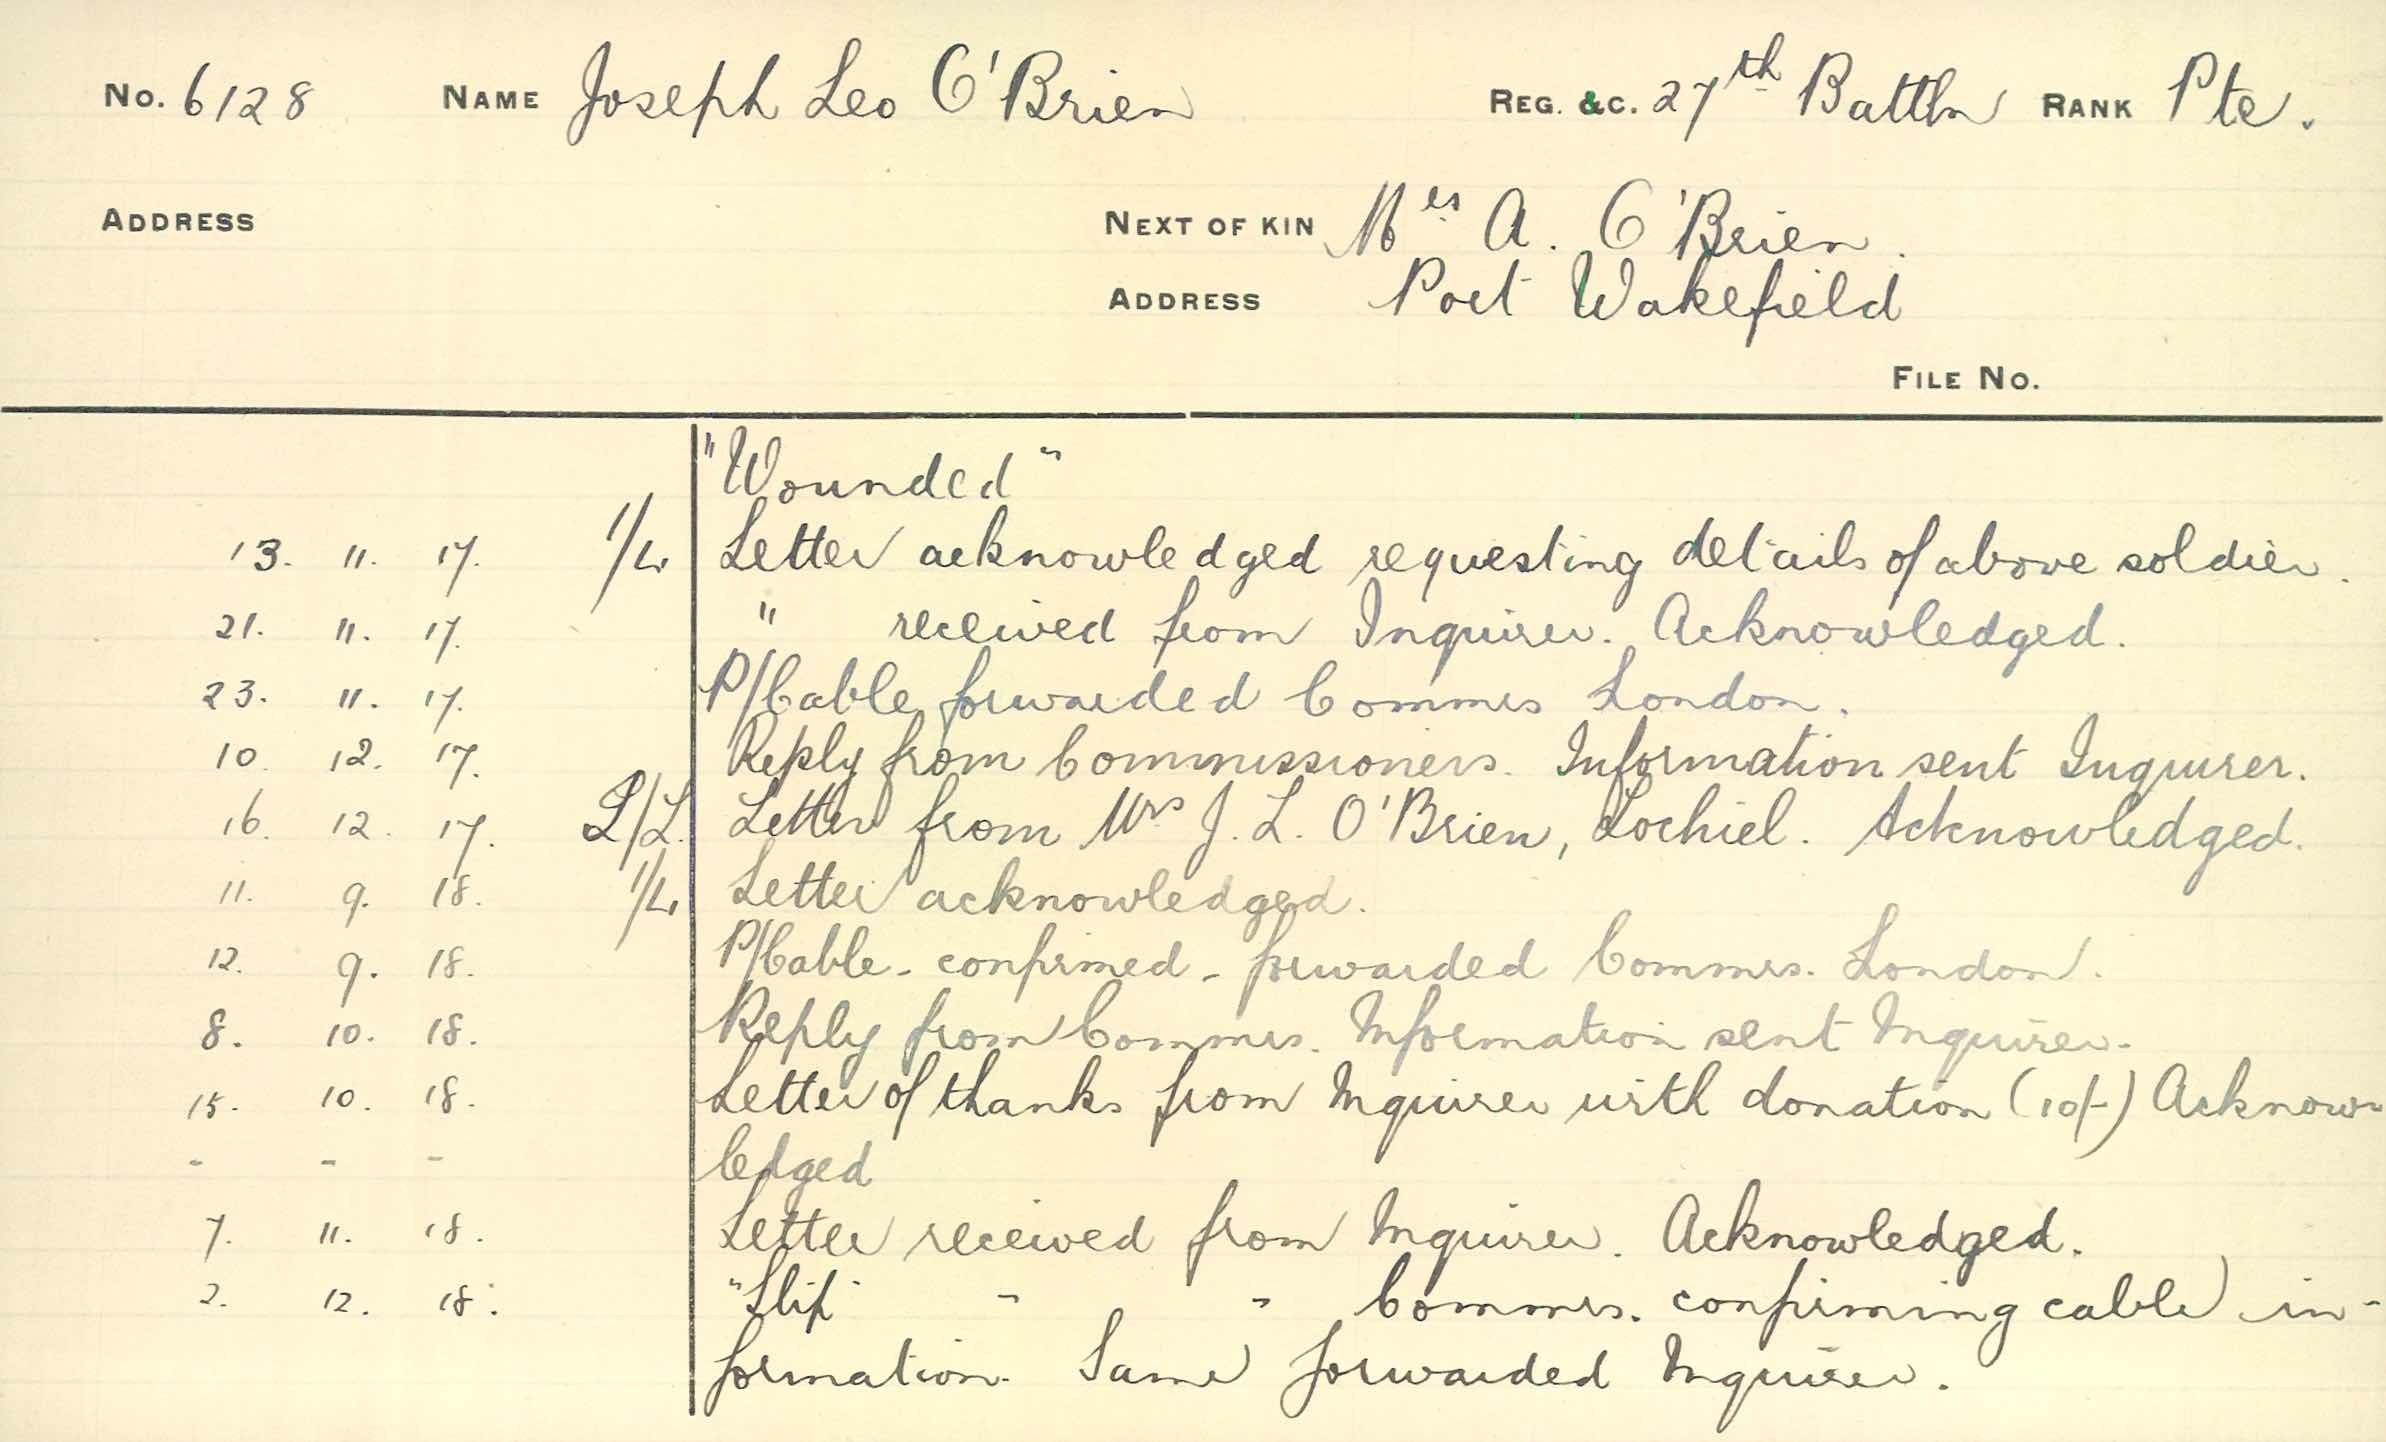 No. 6128 NAME Joseph Leo O'Brien REG. &C. 27th Battln RANK Pte.
ADDRESS NEXT OF KIN Mrs A. O'Brien.
ADDRESS Port Wakefield
FILE No.
"Wounded"
13. 11. 17. 1/L. Letter acknowledged requesting details of above soldier.
21. 11. 17. " received from Inquirer. Acknowledged.
23. 11. 17. P/Cable forwarded Commrs London.
10. 12. 17. Reply from Commissioners. Information sent Inquirer.
16. 12. 17. L/L. Letter from Mrs J. L. O'Brien, Lochiel. Acknowledged.
11. 9. 18. 1/L. Letter acknowledged.
12. 9. 18. P/Cable - confirmed - forwarded Commrs. London.
8. 10. 18. Reply from Commrs. Information sent Inquirer.
15. 10. 18. Letter of thanks from Inquirer with donation (10/-) Acknow-
- - - ledged
7. 11. 18. Letter received from Inquirer. Acknowledged.
2. 12. 18. "Slip" " " Commrs. confirming cable in-
formation. Same forwarded Inquirer.